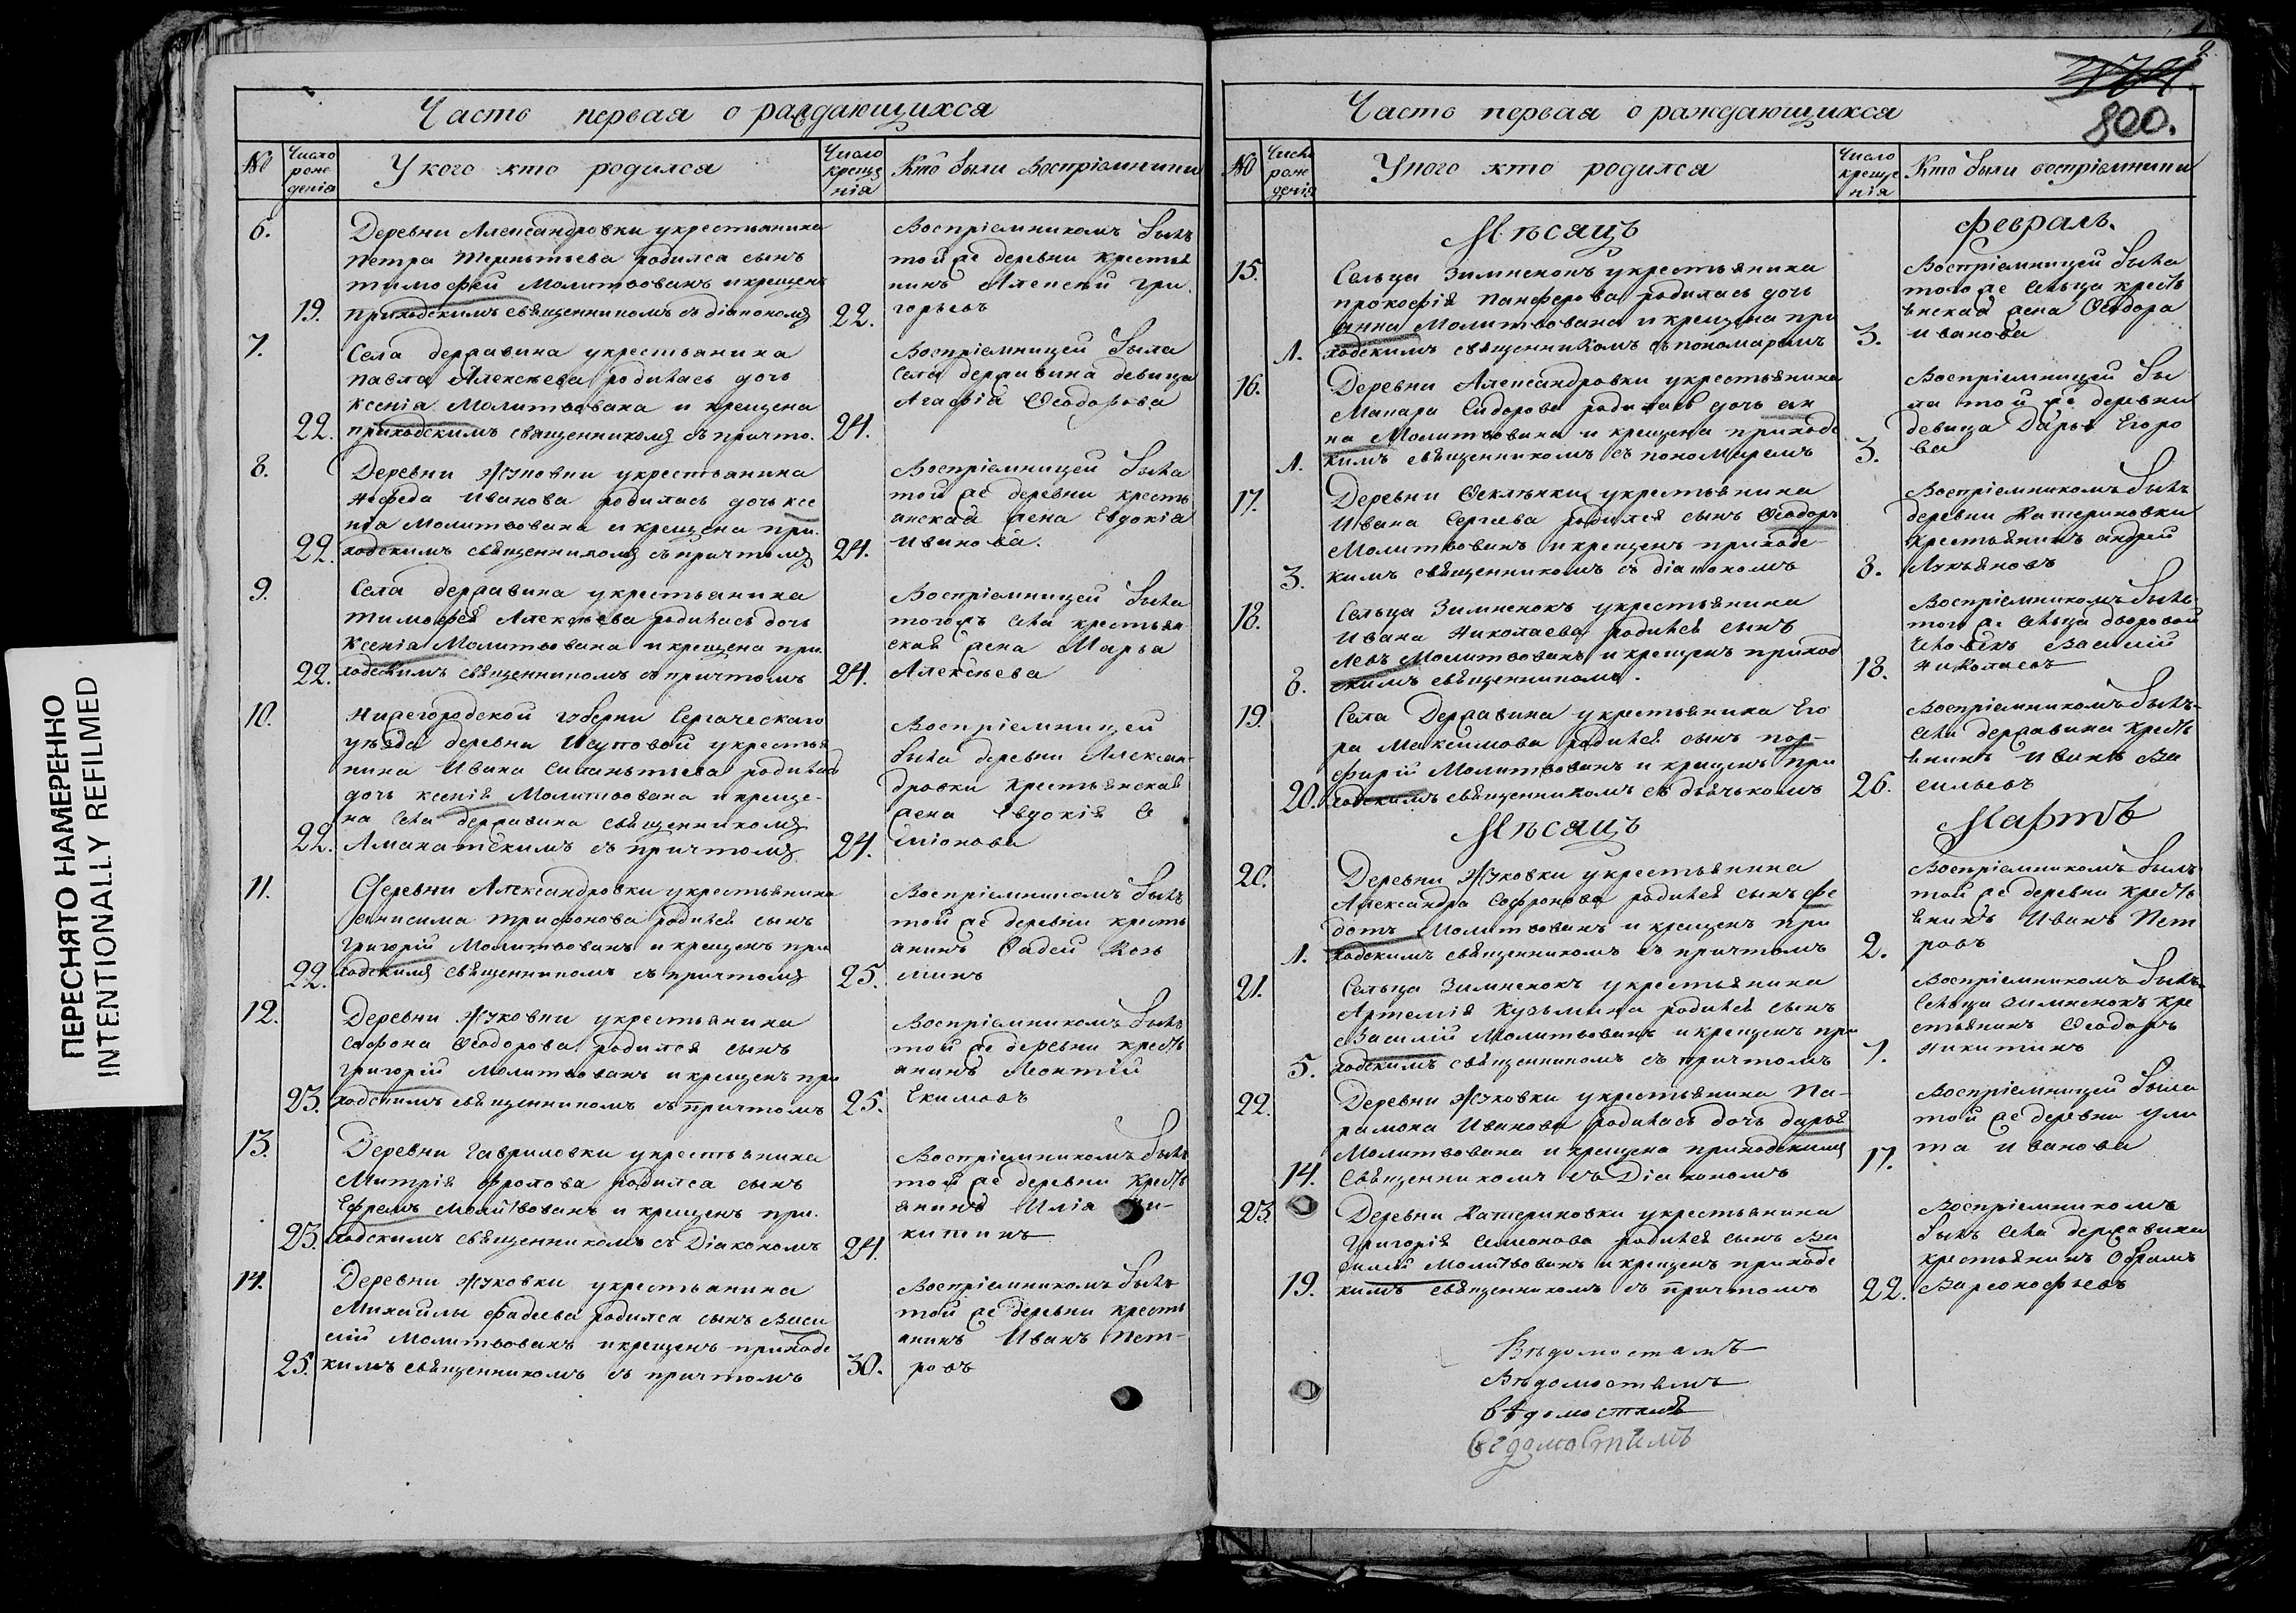 ПЕРЕСНЯТО НАМЕРЕННО
INTENTIONALLY REFILMED
Часть первая о раждающихся
№
Число рожденія
У кого кто родился
Число крещенія
Кто были Воспріемники
6.
Деревни Александровки укрестьянина
Петра Терентьева родился сынъ
тимофей Молитвованъ и крещенъ
приходскимъ священникомъ съ діакономъ
19.
22.
Воспріемникомъ былъ
той же деревни крестья
нинъ Алексей Гри
горьевъ
7.
Села державина укрестьянина
павла Алексѣева родилась дочь
Ксенія Молитвована и крещена
приходскимъ священникомъ съ причто.
22.
24.
Воспріемницей была
села державина девица
Агафія Ѳеодорова
8.
Деревни Жуковки укрестьянина
Нефеда Иванова родилась дочь ксе
нія Молитвована и крещена при
ходскимъ священникомъ съ причтомъ
22.
24.
Воспріемницей была
той же деревни кресть
янская жена Евдокія
Иванова.
9.
Села державина укрестьянина
тимофея Алексѣева родилась дочь
Ксенія Молитвована и крещена при
ходскимъ священникомъ съ причтомъ
22.
24.
Воспріемницей была
тогожъ села крестьян
ская жена Марья
Алексѣева
10.
Нижегородской губерни Сергаческаго
уѣзда деревни Исуповой укрестья
нина Ивана Силантьева родилась
дочь ксенія Молитвована и креще-
на села державина священникомъ
Аманатскимъ съ причтомъ
22.
24.
Воспріемницей
была деревни Алексан
дровки крестьянская
жена Евдокія С
иміонова
11.
Деревни Александровки укрестьянина
анисима трифонова родился сынъ
Григорій Молитвованъ и крещенъ при
ходскимъ священникомъ съ причтомъ
22.
25.
Воспріемникомъ былъ
той же деревни кресть
янинъ Фадей Козь
минъ
12.
Деревни Жуковки укрестьянина
Сафона Ѳеодорова родился сынъ
григорій молитвованъ и крещенъ при
ходскимъ священникомъ съ причтомъ
23.
25.
Воспріемникомъ былъ
той же деревни кресть
янинъ Леонтій
Екимовъ
13.
Деревни Гавриловки укрестьянина
Митрія Фролова родился сынъ
Ефремъ молитвованъ и крещенъ при
ходскимъ священникомъ съ Діакономъ
23.
24.
Воспріемникомъ былъ
той же деревни кресть
янинъ Илія Ни-
китинъ
14.
Деревни Жуковки укрестьянина
Михайлы Фадеева родился сынъ Васи
лій Молитвованъ и крещенъ приходс
кимъ священникомъ съ причтомъ
25.
30.
Воспріемникомъ былъ
той же деревни кресть
янинъ Иванъ Пет-
ровъ
2
800.
Часть первая о раждающихся
№
Число рожденія
У кого кто родился
Число крещенія
Кто были воспріемники
Мѣсяцъ
Февраль.
15.
Сельца Зимненокъ укрестьянина
прокофія Панферова родилась дочь
анна Молитвована и крещена при
ходскимъ священникомъ съ пономаремъ
1.
3.
Воспріемницей была
того же сельца кресть
янская жена Ѳеодора
иванова
16.
Деревни Александровки укрестьянина
Макара Сидорова родилась дочь ан
на Молитвована и крещена приходс
кимъ священникомъ съ пономаремъ
1.
3.
Воспріемницей бы
ла той же деревни
девица Дарья Егоро
ва
17.
Деревни Ѳеклѣнки укрестьянина
Ивана Сергѣева родился сынъ Ѳеодоръ
Молитвованъ и крещенъ приходс
кимъ священникомъ съ діакономъ
3.
8.
Воспріемникомъ былъ
деревни Катериновки
крестьянинъ андрей
Лукьяновъ
18.
Сельца Зимненокъ укрестьянина
Ивана Николаева родился сынъ
Левъ Молитвованъ и крещенъ приход
скимъ священникомъ.
8.
18.
Воспріемникомъ былъ
того же сельца дворовой
человекъ Василій
николаевъ
19.
Села Державина укрестьянина Его
ра Максимова родился сынъ пор-
фирій Молитвованъ и крещенъ при
ходскимъ священникомъ съ дьячькомъ
20.
26.
Воспріемникомъ былъ
села державина кресть
янинъ Иванъ Ва
сильевъ
Мѣсяцъ
Мартъ
20.
Деревни Жуковки укрестьянина
Александра Софронова родился сынъ фе
дотъ Молитвованъ и крещенъ при
ходскимъ священникомъ съ причтомъ
1.
2.
Воспріемникомъ былъ
той же деревни кресть
янинъ Иванъ Пет
ровъ
21.
Сельца Зимненокъ укрестьянина
Артемія Кузьмина родился сынъ
Василій Молитвованъ и крещенъ при
ходскимъ священникомъ съ причтомъ
5.
7.
Воспріемникомъ былъ
сельца зимненокъ кре
стьянинъ Ѳеодоръ
никитинъ
22.
Деревни Жуковки укрестьянина Па-
рамона Иванова родилась дочь дарья
Молитвована и крещена приходскимъ
священникомъ съ Діакономъ
14.
17.
Воспріемницей была
той же деревни ули
та иванова
23.
Деревни Катериновки укрестьянина
Григорія Семіонова родился сынъ Ва
силій Молитвованъ и крещенъ приходс
кимъ священникомъ съ причтомъ
19.
22.
Воспріемникомъ
былъ села державина
крестьянинъ Ебрамъ
Варсонофьевъ
Вѣдомостямъ
Вѣдомостямъ
вѣдомостямъ
Ведомостямъ